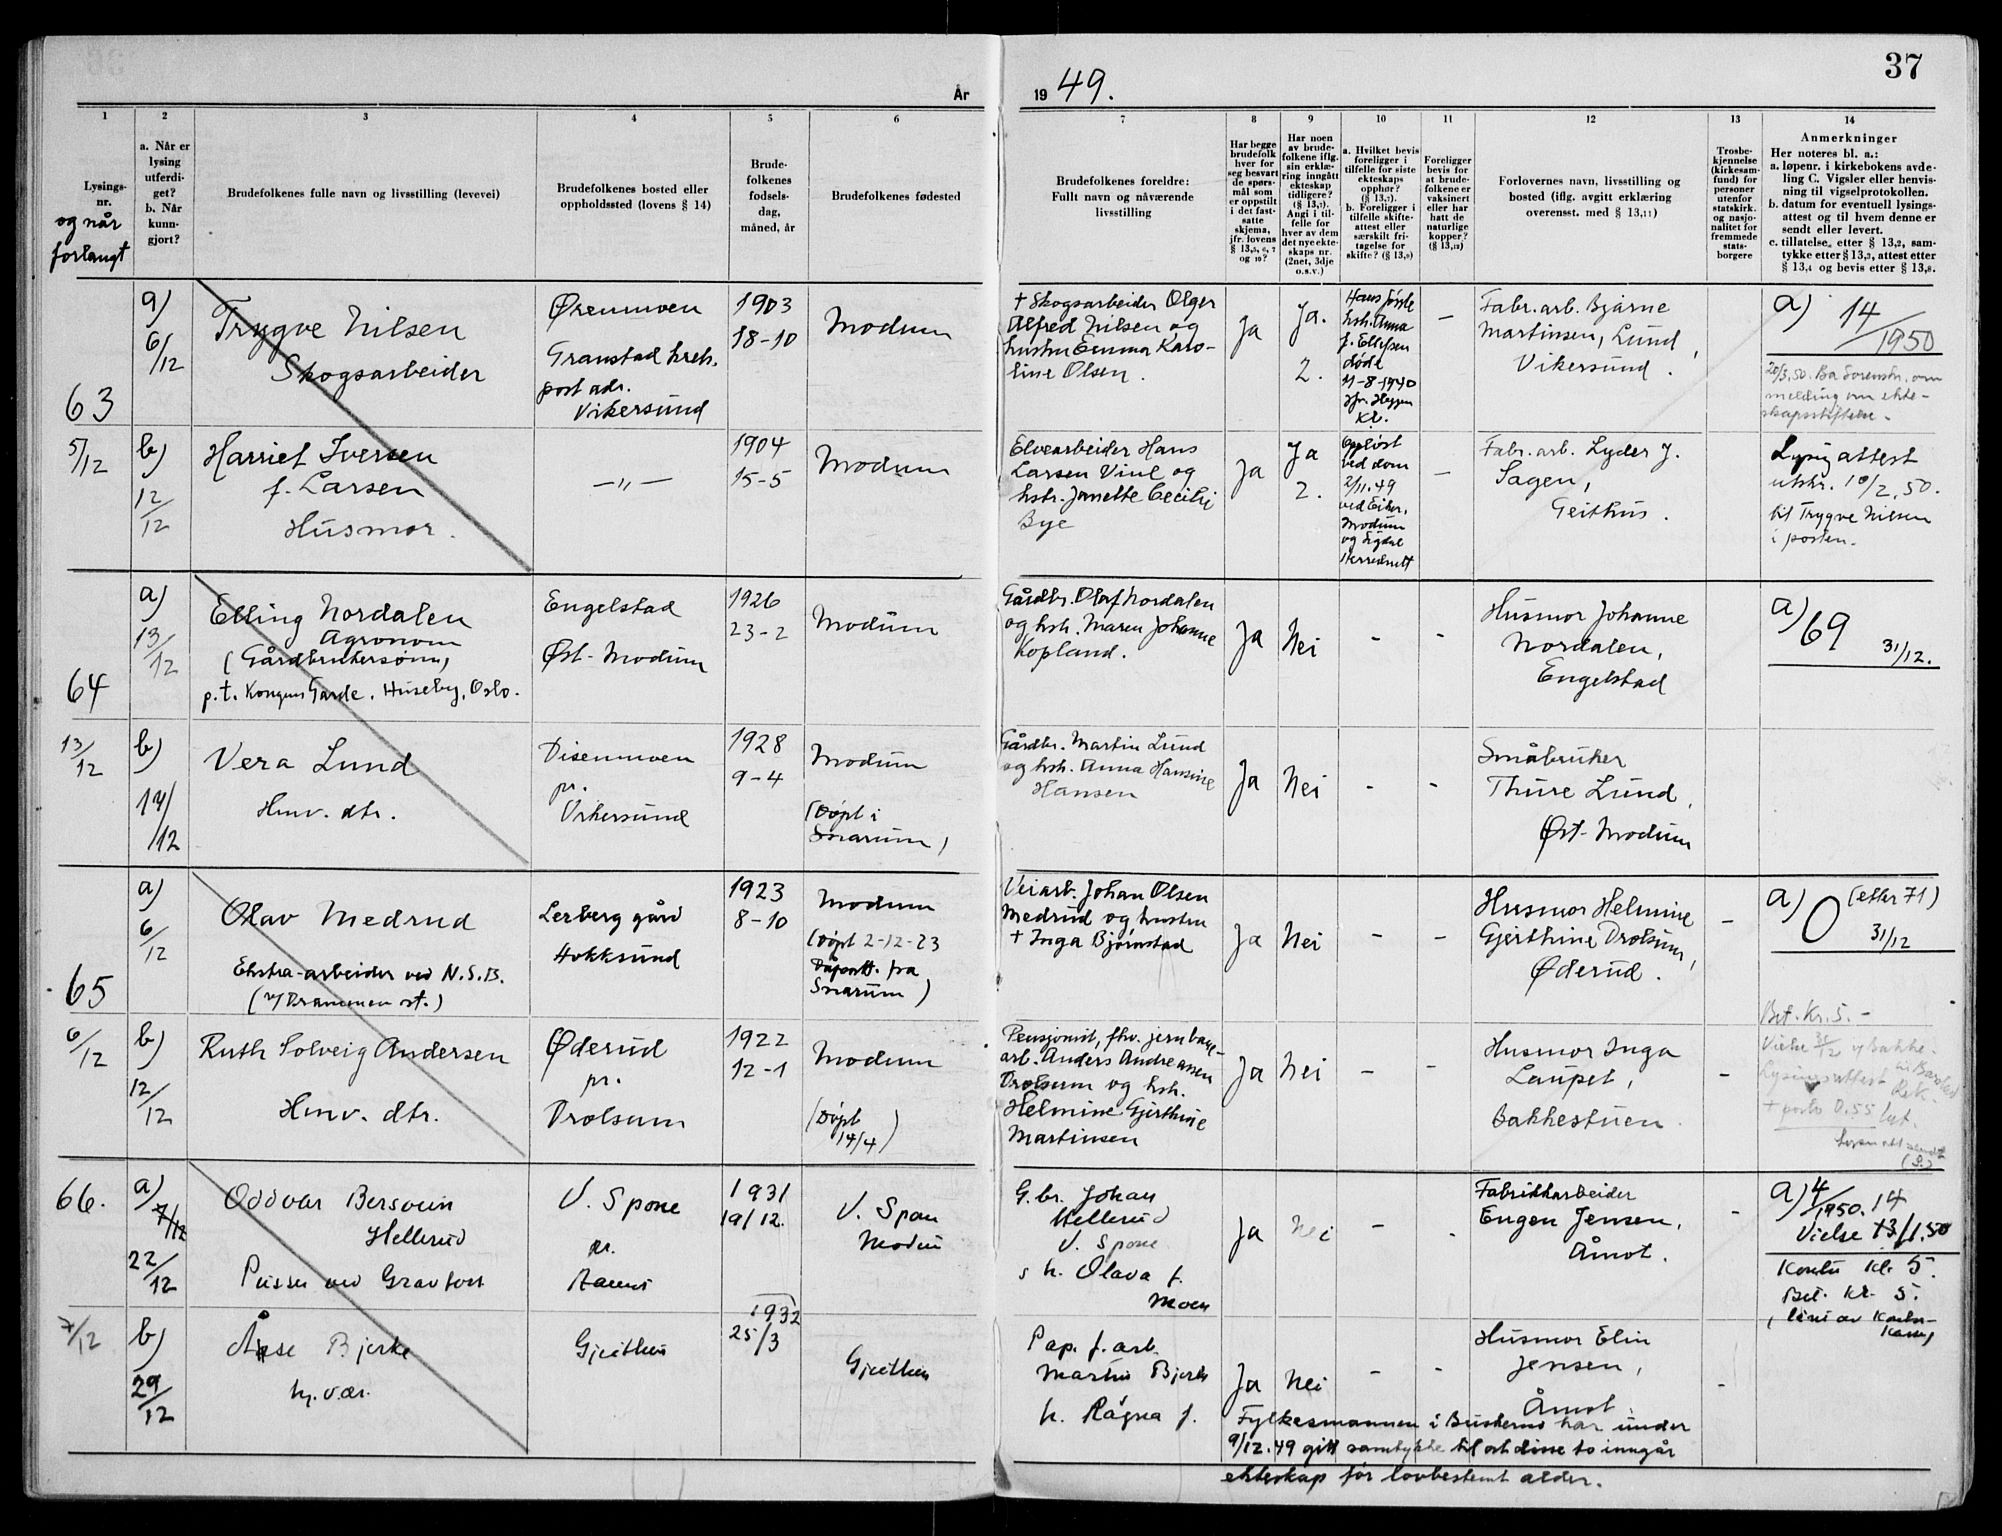 37
År
19 49.
1
Lysings-
nr.
og når
forlangt
2
a. Når er
lysing
utferdi-
get?
b. Når
kunn-
gjort?
3
Brudefolkenes fulle navn og livsstilling (levevei)
4
Brudefolkenes bosted eller
oppholdssted (lovens § 14)
5
Brude-
folkenes
fødsels-
dag,
måned, år
6
Brudefolkenes fødested
7
Brudefolkenes foreldre:
Fullt navn og nåværende
livsstilling
8
Har begge
brudefolk
hver for
seg besvart
de spørs-
mål som
er oppstilt
i det fast-
satte
skjema,
jfr. lovens
§ 13,5, 6, 7
og 10?
9
Har noen
av brude-
folkene iflg.
sin erklæ-
ring inngått
ekteskap
tidligere?
(§ 13,7).
Angi i til-
felle for
hver av dem
det nye ekte-
skaps nr.
(2net, 3dje
o.s.v.)
10
a. Hvilket bevis
foreligger i
tilfelle for siste
ekteskaps
opphør?
(§ 13,7).
b. Foreligger i
tilfelle skifte-
attest eller
særskilt fri-
tagelse for
skifte? (§ 13,9)
11
Foreligger
bevis for
at brude-
folkene er
vaksinert
eller har
hatt de
naturlige
kopper?
(§ 13,12)
12
Forlovernes navn, livsstilling og
bosted (iflg. avgitt erklæring
overensst. med § 13,11)
13
Trosbe-
kjennelse
(kirkesam-
fund) for
personer
utenfor
statskirk.
og nasjo-
nalitet for
fremmede
stats-
borgere
14
Anmerkninger
Her noteres bl. a.:
a. løpenr. i kirkebokens avde-
ling C. Vigsler eller henvis-
ning til vigselprotokollen.
b. datum for eventuell lysings-
attest og til hvem denne er
sendt eller levert.
c. tillatelse etter § 13,2, sam-
tykke etter § 13,3, attest etter
§ 13,4 og bevis etter § 13,8.
63
a)
6/12
Trygve Nilsen
Skogsarbeider
Øremmoen
Granstad krets.
post adr.
Vikersund
1903
18-10
Modum
+ Skogsarbeider Olger
Alfred Nilsen og
hustru Emma Karo-
line Olsen.
Ja
Ja.
2.
Hans første
hstr. Anna
f. Ellefsen
døde
11-8-1940
Heggen
kl.
-
Fabr. arb. Bjarne
Martinsen, Lund,
Vikersund.
a) 14/1950
20/3.50. Sorenskr. om
melding om ekte-
skapsstiftelse.
5/12
b)
12/12
Harriet Iversen
f. Larsen
Husmor.
-"-
1904
15-5
Modum
Elvearbeider Hans
Larsen Viul og
hstr. Janette Cecilie
Bye
Ja
Ja
2.
Oppløst
ved dom
2/11.49
ved Eiker,
Modum
og Sigdal
Herredsrett
-
Fabr. arb. Lyder J.
Sagen,
Geithus.
Lysig attest
utskr. 10/2.50.
til Trygve Nilsen
i posten.
64
a)
13/12
Elling Nordalen
Agronom
(Gårdbrukersønn)
p.t. Kongens Garde, Huseby, Oslo.
Engelstad
Øst-Modum
1926
23-2
Modum
Gårdbr. Olaf Nordalen
og hstr. Maren Johanne
Kopland.
Ja
Nei
-
-
Husmor Johanne
Nordalen,
Engelstad
a) 69 31/12.
13/12
b)
14/12
Vera Lund
Hmv. dtr.
Disenmoen
pr.
Vikersund
1928
9-4
Modum
(Døpt i
Snarum)
Gårdbr. Martin Lund
og hstr. Anna Hansine
Hansen
Ja
Nei
-
-
Småbruker
Thure Lund,
Øst-Modum
65
a)
6/12
Olav Medrud
Ekstra-arbeider ved N.S.B.
(v/ Drammen st.)
Lerberg gård
Hokksund
1923
8-10
Modum
(Døpt 2-12-23
Dåpsatt. fra
Snarum)
Veiarb. Johan Olsen
Medrud og hustru
+ Inga Bjørnstad
Ja
Nei
-
-
Husmor Helmine
Gjerthine Drolsum,
Øderud.
-
a) 0 (etter 71)
31/12
6/12
b)
12/12
Ruth Solveig Andersen
Hmv. dtr.
Øderud
pr.
Drolsum
1922
12-1
Modum
(Døpt
14/4)
Pensjonist, fhv. jernbane-
arb. Anders Andreassen
Drolsum og hstr.
Helmine Gjerthine
Martinsen
Ja
Nei
-
-
Husmor Inga
Laupet,
Bakkestuen
-
Bet. Kr. 5.-
Vielse 31/12 v/ Bakke.
Lysingsattest
+ porto 0.55 bet.
66.
a)
7/12
22/12
Oddvar Bersvein
Hellerud
Pusser ved Gravfoss
V. Spone
pr.
Aamot
1931
19/12.
V. Spon
Modum
G.br. Johan
Hellerud
V. Spone
s h. Olava f.
Moen
Ja
Nei
-
-
Fabrikkarbeider
Eugen Jensen,
Åmot.
-
a) 4/1950. 14
Vielse 13/1.50
Kontr. Kr. 5.
Bet. Kr. 5.
7/12
b)
29/12
Åse Bjerke
hj.vær.
Gjeithus
1932
25/3
Gjeithus
Pap. f. arb.
Martin Bjerke
h. Ragna f.
Ja
Nei
-
-
Husmor Elin
Jensen,
Åmot
-
Fylkesmannen i Buskerud har under
9/12.49 gitt samtykke til at disse to inngår
ekteskap før lovbestemt alder.